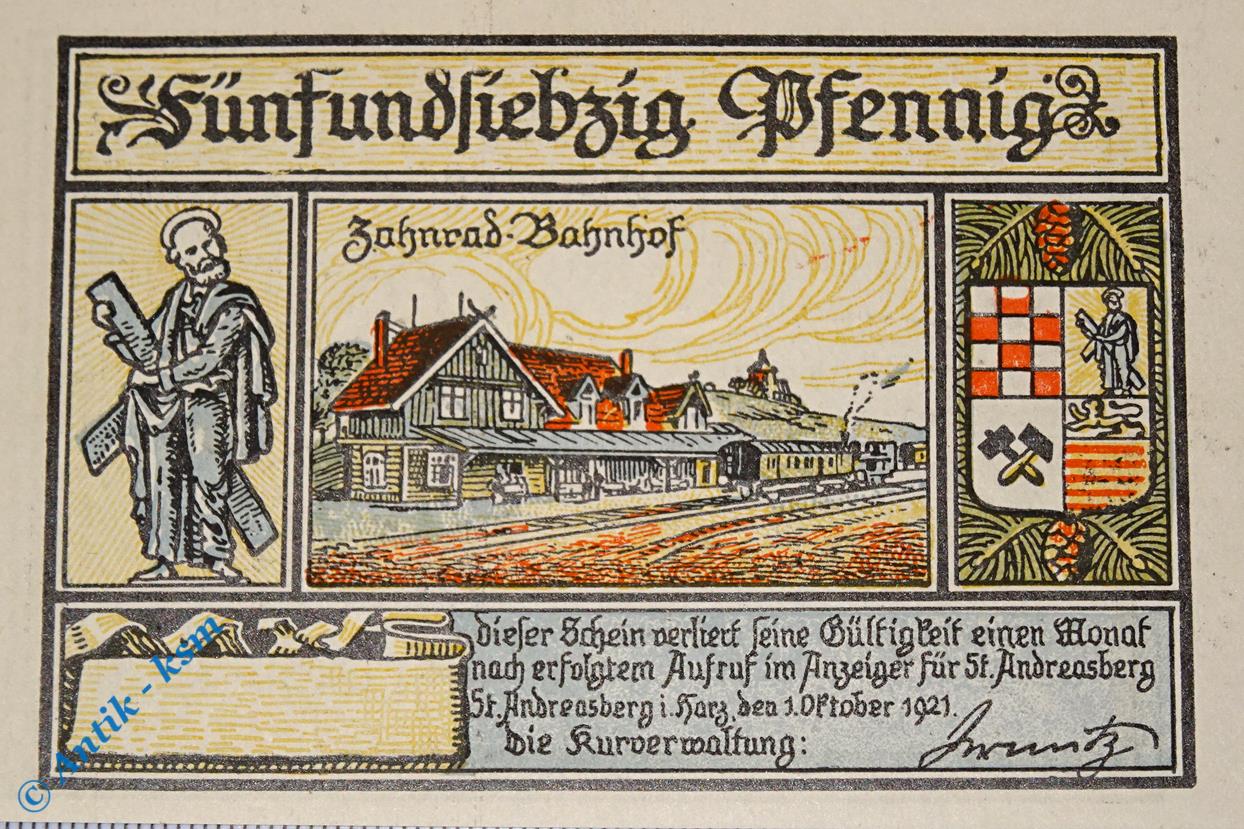 Fünfundsiebzig Pfennig
Zahnrad-Bahnhof
Dieser Schein verliert seine Gültigkeit einen Monat
nach erfolgtem Aufruf im Anzeiger für St. Andreasberg
St. Andreasberg i. Harz, den 1. Oktober 1921.
Die Kurverwaltung:
© Antik - ksm